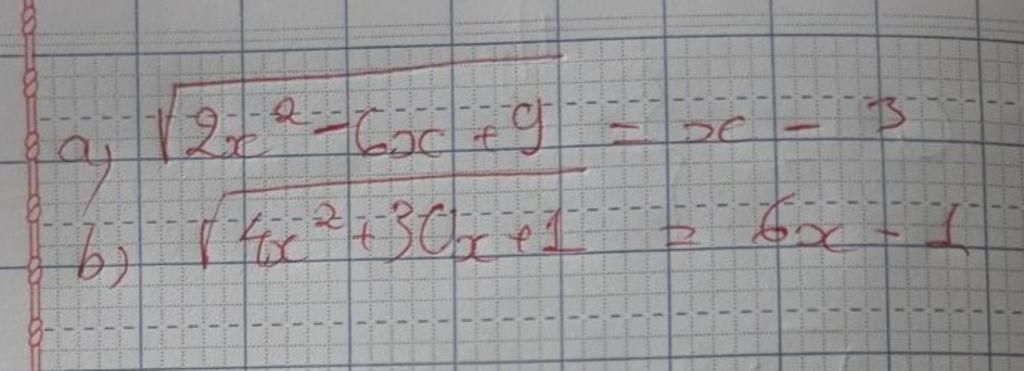 a) √2x² - 6x + 9 = x - 3
b) √4x² + 30x + 1 = 6x - 1